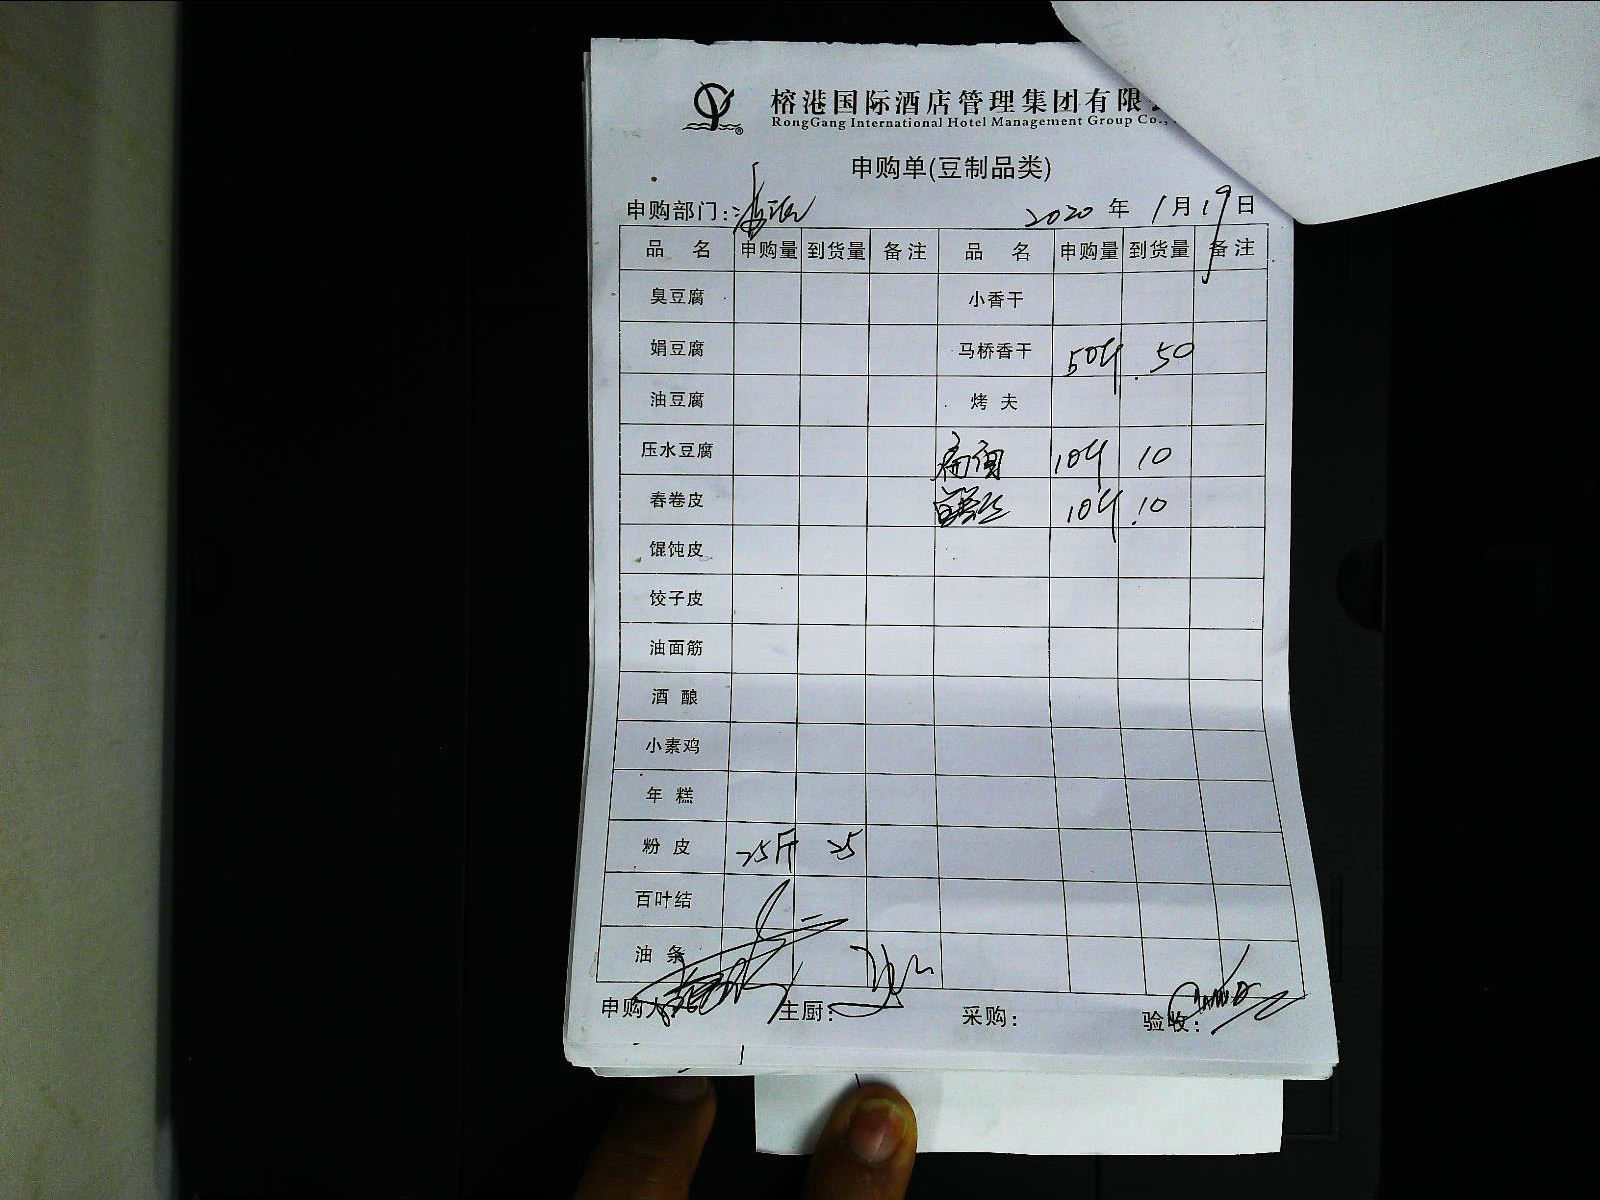 榕港国际酒店管理集团有限
RongGang International Hotel Management Group Co.,
申购单(豆制品类)
申购部门: 2020 年 1 月 19 日
品 名 申购量 到货量 备注 品 名 申购量 到货量 备注
臭豆腐 小香干
娟豆腐 马桥香干 50斤 50
油豆腐 烤 夫
压水豆腐 10斤 10
春卷皮 10斤 10
馄饨皮
饺子皮
油面筋
酒 酿
小素鸡
年 糕
粉 皮 25斤 25
百叶结
油 条
申购人 主厨: 采购: 验收: